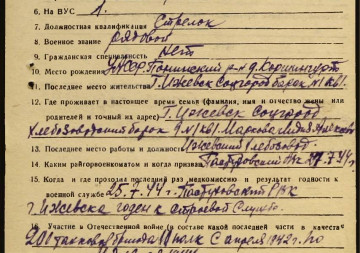 6. На ВУС 1.
7. Должностная квалификация Стрелок
8. Военное звание рядовой
9. Гражданская специальность нет
10. Место рождения УАССР. р-н д.
11. Последнее место жительства г. Ижевск Соцгород барак №1 кв1.
12. Где проживает в настоящее время семья (фамилия, имя и отчество жены или
родителей и точный их адрес) г. Ижевск Соцгород
Хлебозаводский барак №1 кв1.
13. Последнее место работы и должность Ижевский
14. Каким райгорвоенкоматом и когда призван
15. Когда и где проходил последний раз медкомиссию и результат годности к
военной службе 25.7.44г. Пастуховский РВК
г. Ижевска годен к строевой службе.
16. Участие в Отечественной войне (в составе какой последней части, в качестве
200 танковая бригада полк с апреля 1942г. по